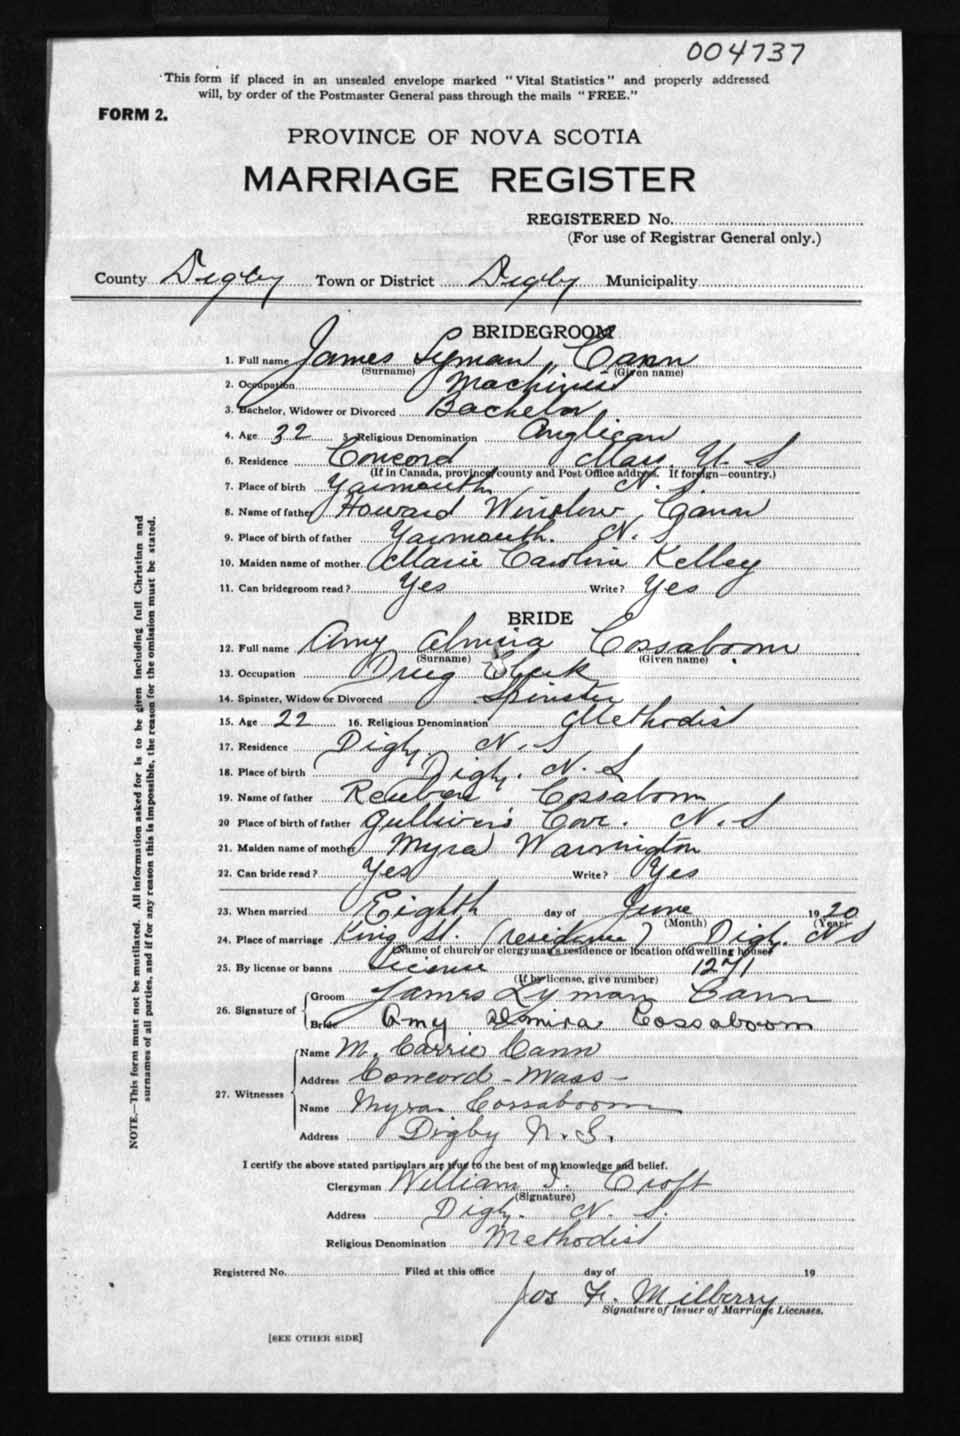 004737
This form if placed in an unsealed envelope marked "Vital Statistics" and properly addressed
will, by order of the Postmaster General pass through the mails "FREE."
FORM 2.
PROVINCE OF NOVA SCOTIA
MARRIAGE REGISTER
REGISTERED No.
(For use of Registrar General only.)
County Digby Town or District Digby Municipality
BRIDEGROOM
1. Full name James Lyman Cann
(Surname) (Given name)
2. Occupation Machinist
3. Bachelor, Widower or Divorced Bachelor
4. Age 32 5. Religious Denomination Anglican
6. Residence Concord Mass. U S
(If in Canada, province/county and Post Office address. If foreign—country.)
7. Place of birth Yarmouth N. S.
8. Name of father Howard Winslow Cann
9. Place of birth of father Yarmouth. N. S
10. Maiden name of mother Marie Carolina Kelley
11. Can bridegroom read? Yes Write? Yes
BRIDE
12. Full name Amy Almira Cossaboom
(Surname) (Given name)
13. Occupation Drug Clerk
14. Spinster, Widow or Divorced Spinster
15. Age 22 16. Religious Denomination Methodist
17. Residence Digby. N. S
18. Place of birth Digby. N. S
19. Name of father Reuben Cossaboom
20 Place of birth of father Gulliver's Cove. N. S
21. Maiden name of mother Myra Warrington
22. Can bride read? Yes Write? Yes
23. When married Eighth day of June 1920
(Month) (Year)
24. Place of marriage King St. (residence) Digby. N S
(Name of church or clergyman's residence or location of dwelling house)
25. By license or banns License 1271
(If by license, give number)
26. Signature of Groom James Lyman Cann
Bride Amy Almira Cossaboom
27. Witnesses Name M. Carrie Cann
Address Concord - Mass -
Name Myra Cossaboom
Address Digby N. S.
I certify the above stated particulars are true to the best of my knowledge and belief.
Clergyman William I. Croft
(Signature)
Address Digby. N. S.
Religious Denomination Methodist
Registered No. Filed at this office day of 19
Jos F. Milberry
Signature of Issuer of Marriage Licenses.
[SEE OTHER SIDE]
NOTE.—This form must not be mutilated. All information asked for is to be given including full Christian and
surnames of all parties, and if for any reason this is impossible, the reason for the omission must be stated.